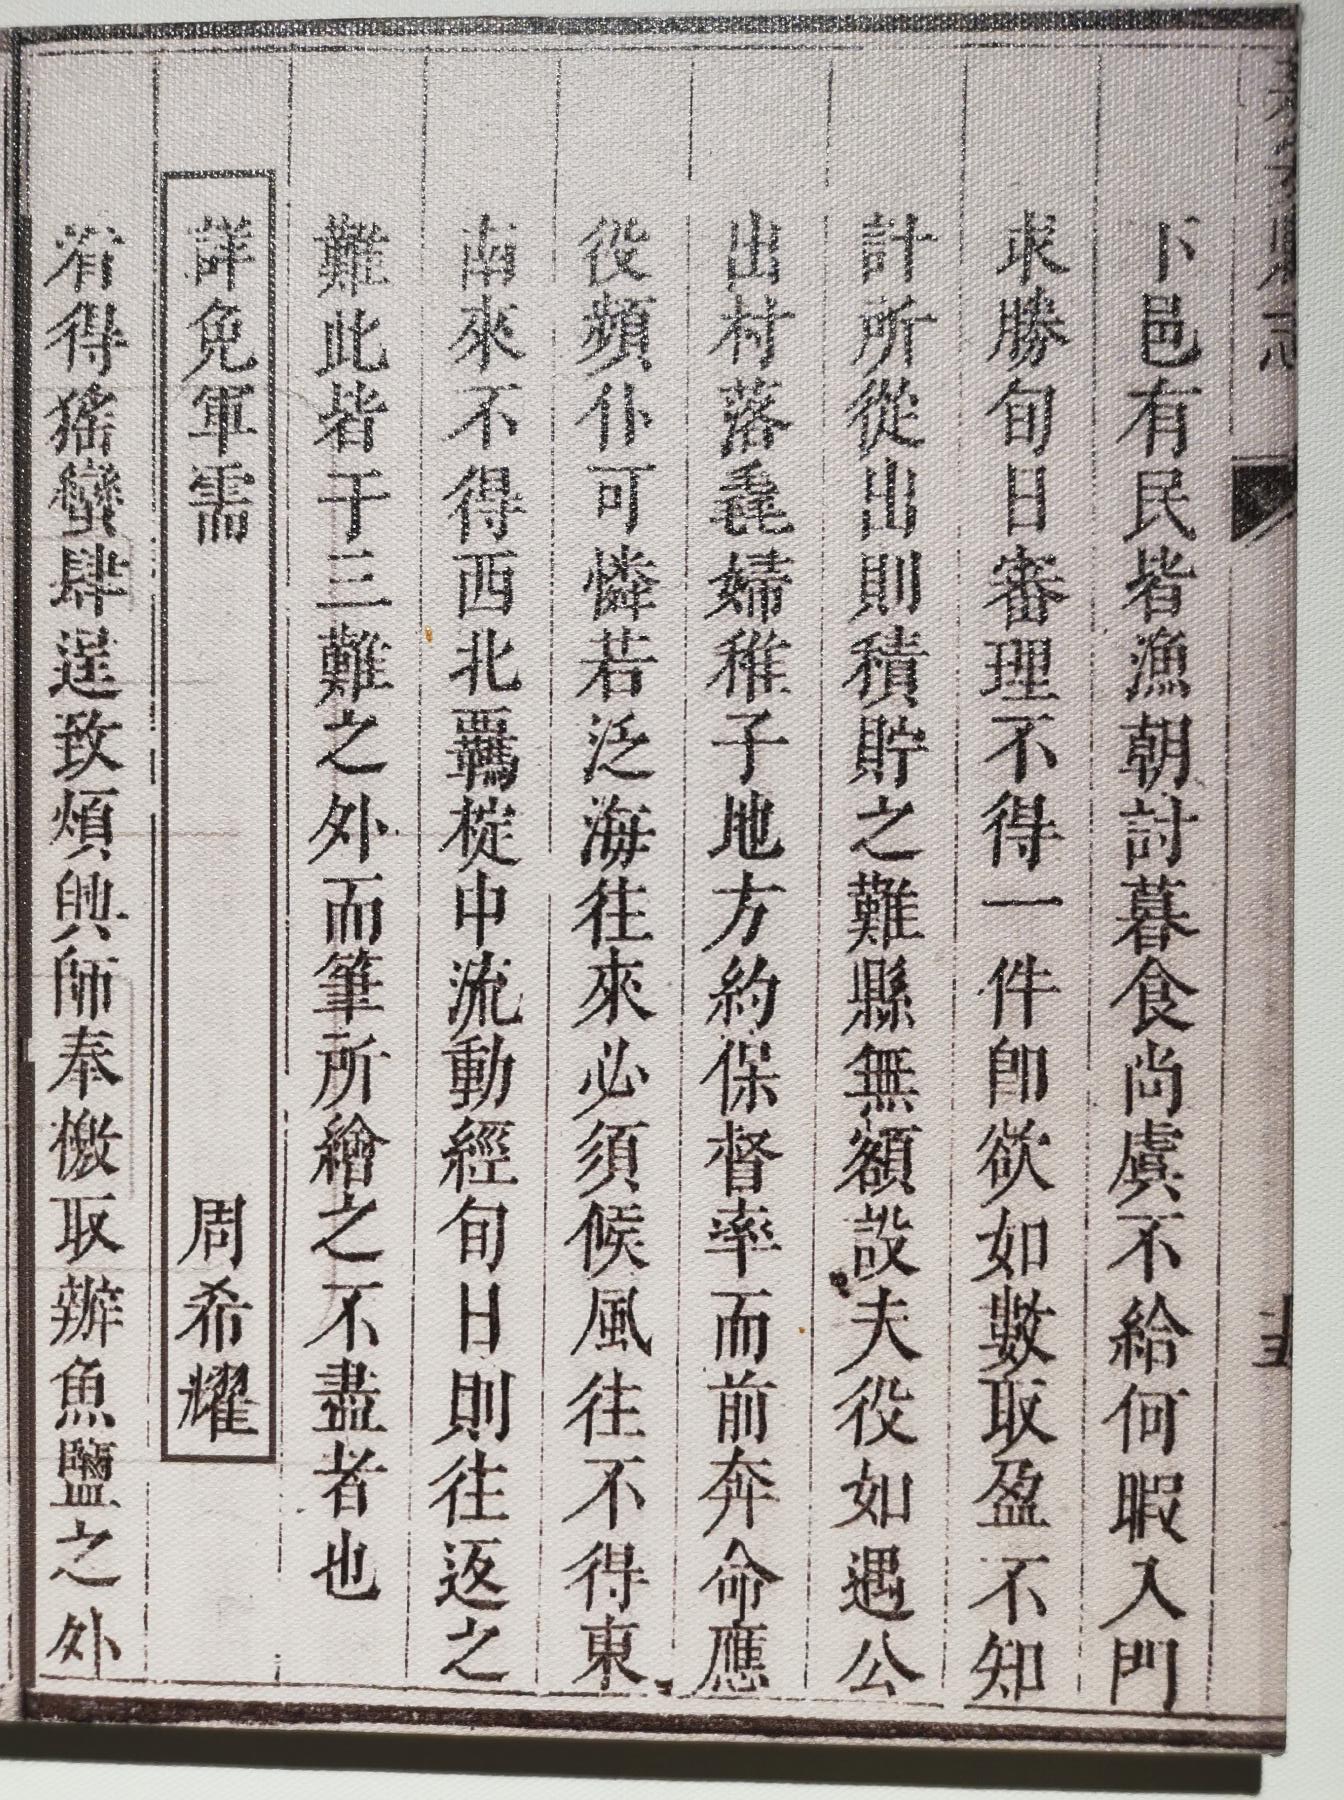 卜邑有民皆漁朝討暮食尚虞不給何暇入門
求勝旬日審理不得一件卽欲如數取盈不知
計所從出則積貯之難縣無額設夫役如遇公
出村落毳婦稚子地方約保督率而前奔命應
役頻仆可憐若泛海往來必須候風往不得東
南來不得西北羈椗中流動經旬日則往返之
難此皆于三難之外而筆所繪之不盡者也
詳免軍需 周希耀
看得猺蠻肆逞致煩興師奉檄取辦魚鹽之外